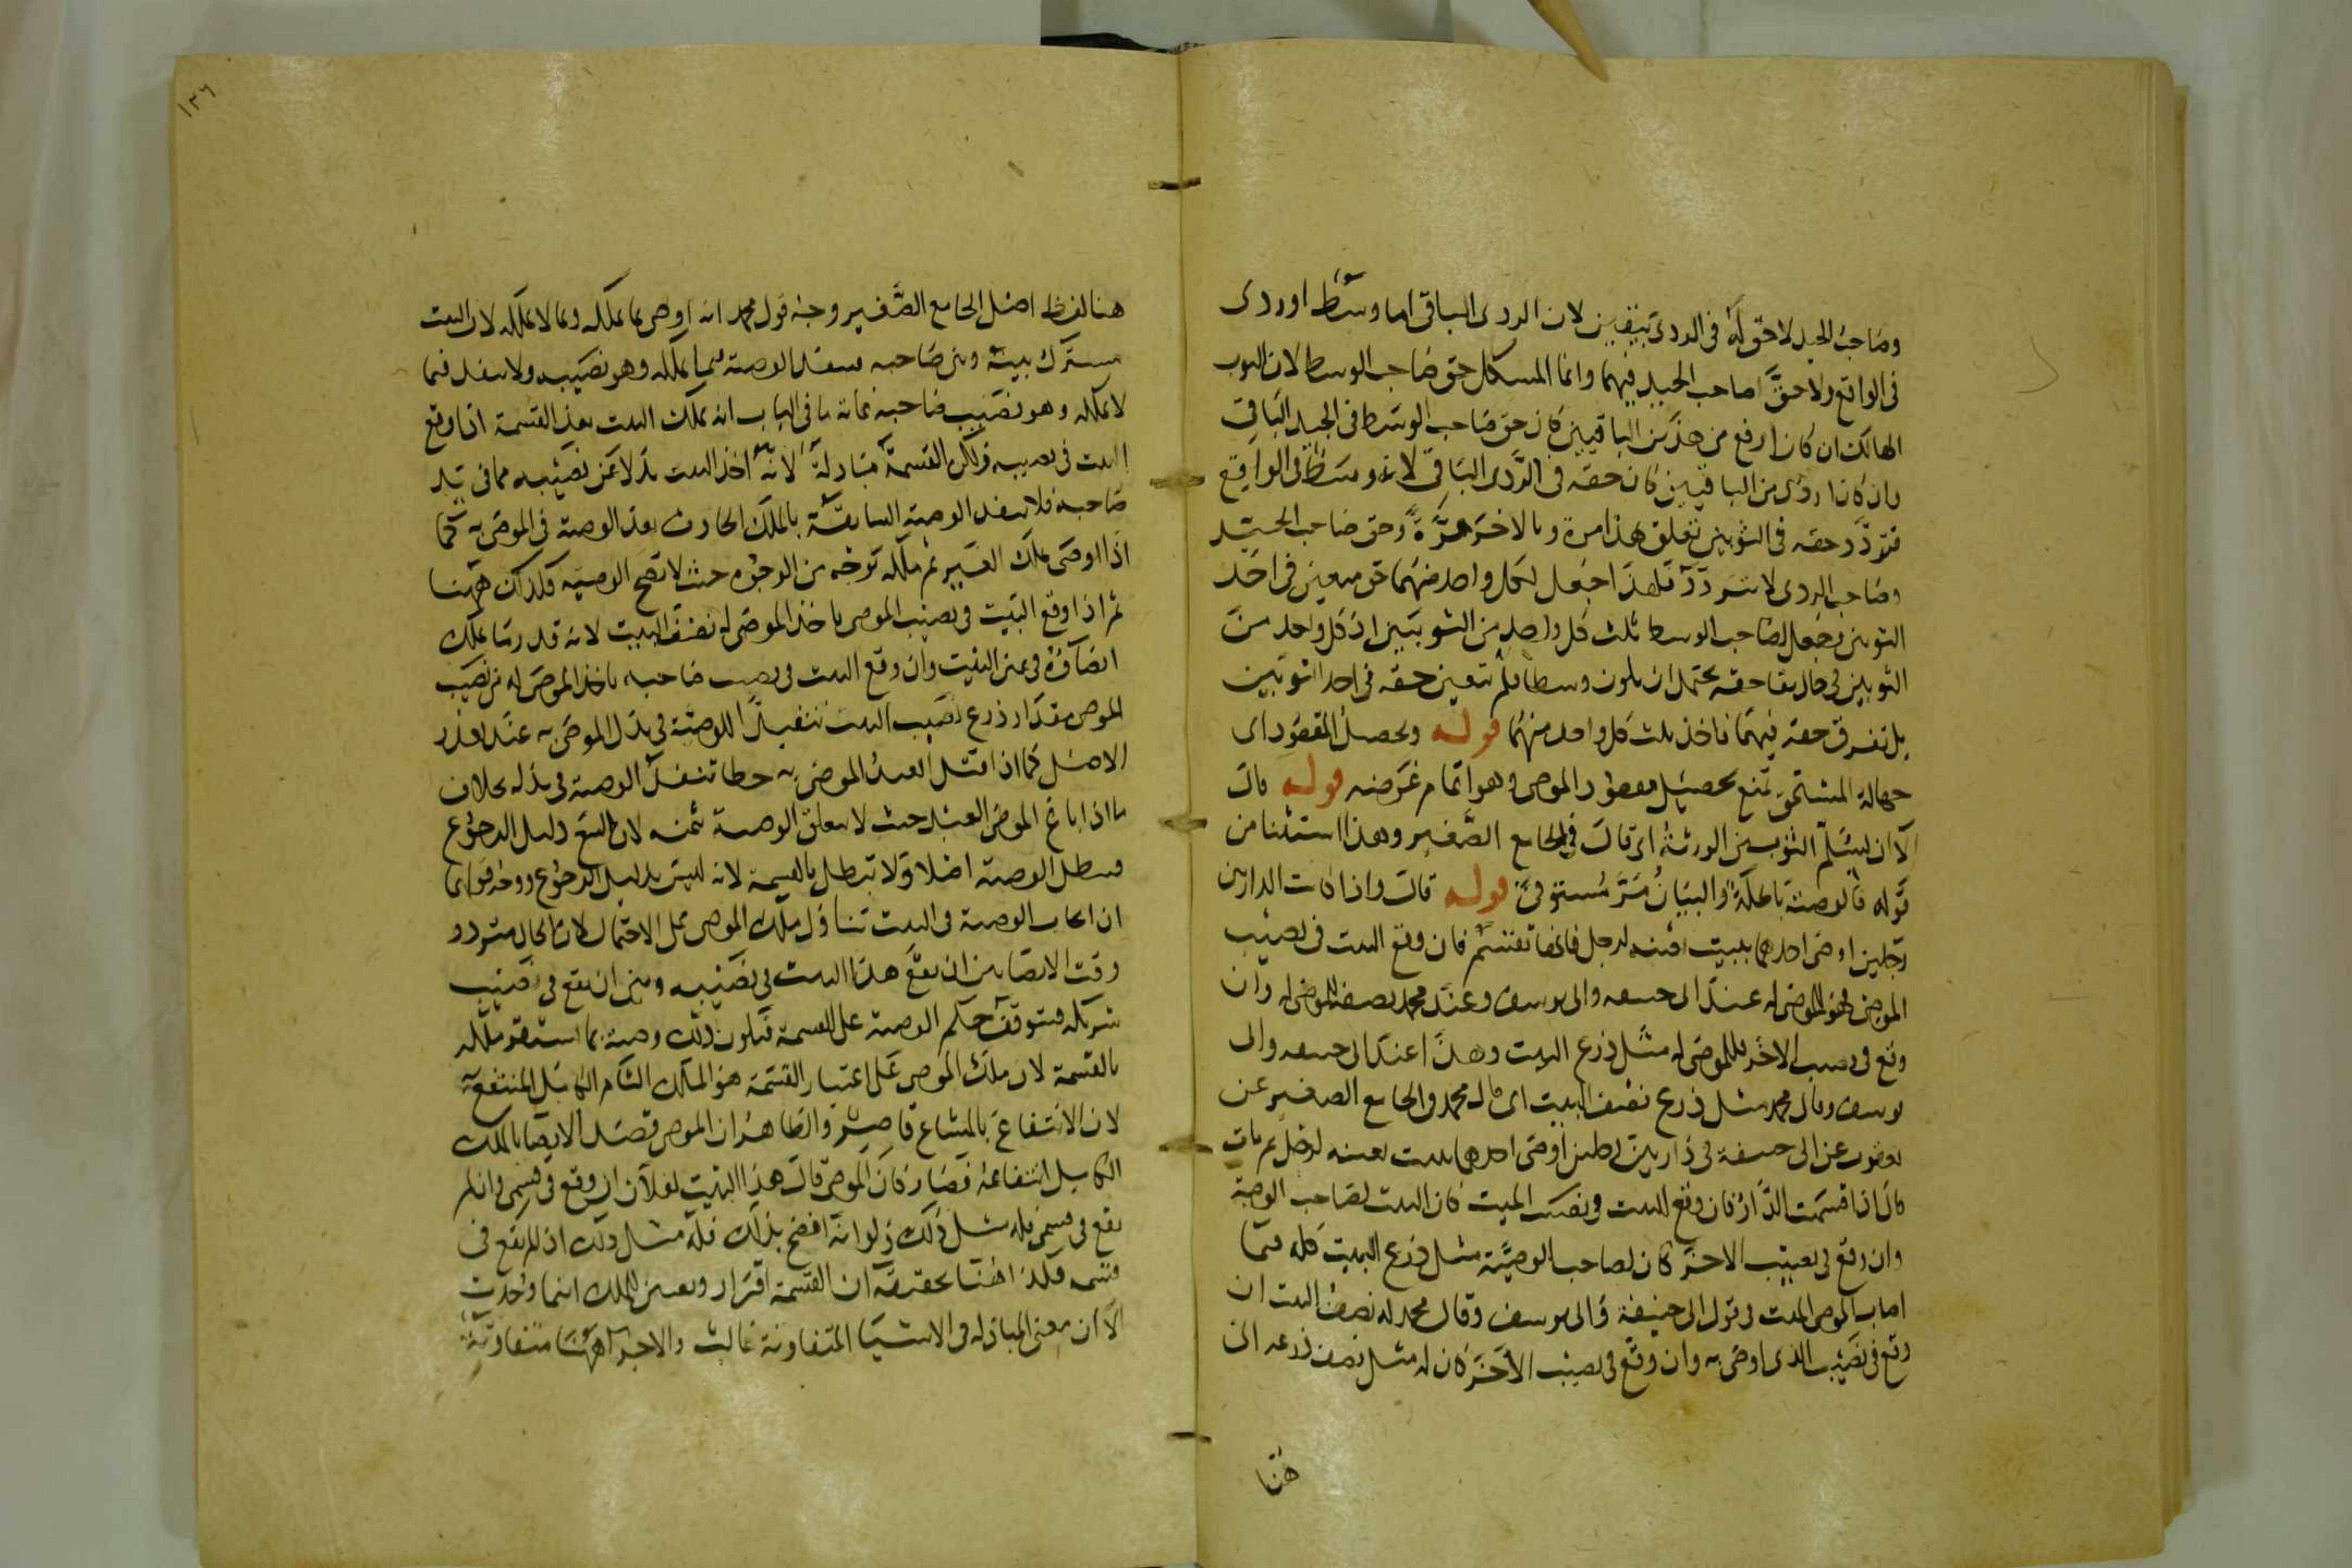 وصاحب الجيد لا حق له فى الردى بيقين لان الردى الباقى اما وسط او ردى
فى الواقع ولا حق لصاحب الجيد فيهما وانما المشكل حق صاحب الوسط لان الثوب
الهالك ان كان ارفع من هذين الباقيين كان حق صاحب الوسط فى الجيد الباقى
وان كان اردى من الباقيين كان حقه فى الردى الباقى لانه وسط فى الواقع
فتردد حقه فى الثوبين تعلق بهذا مرة وبالاخر مرة وحق صاحب الجيد
وصاحب الردى لا يتردد فلهذا جعل لكل واحد منهما حق معين فى احد
الثوبين وجعل لصاحب الوسط ثلث كل واحد من الثوبين اذ كل واحد من
الثوبين فى حال بقا حقه يحتمل ان يكون وسطا فلم يتعين حقه فى احد الثوبين
بل تفرق حقه فيهما فاخذ ثلث كل واحد منهما قوله وتحصيل المقصود اى
جهالة المستحق تمنع تحصيل مقصود الموصى وهو اتمام غرضه قوله قال
الا ان يسلم الثوبين الورثة اى قال فى الجامع الصغير وهذا استثنا من
قوله فالوصية باطلة والبيان مر مستوفى قوله قال واذا كانت الدار بين
رجلين اوصى احدهما ببيت بعينه لرجل فانها تقسم فان وقع البيت فى نصيب
الموصى فهو للموصى له عند ابى حنيفه وابى يوسف وعند محمد نصفه للموصى له وان
وقع فى نصيب الاخر فللموصى له مثل ذرع البيت وهذا عند ابى حنيفه وابى
يوسف وقال محمد مثل ذرع نصف البيت اى قال محمد فى الجامع الصغير عن
يعقوب عن ابى حنيفة فى دار بين رجلين اوصى احدهما ببيت بعينه لرجل ثم مات
قال اذا قسمت الدار فان وقع البيت فى نصيب الميت كان البيت لصاحب الوصية
وان وقع فى نصيب الاخر كان لصاحب الوصية مثل ذرع البيت كله فيما
اصاب الموصى الميت فى قول ابى حنيفة وابى يوسف وقال محمد له نصف البيت ان
وقع فى نصيب الذى اوصى به وان وقع فى نصيب الاخر كان له مثل نصف ذرعه الى
هنا
١٣٦
هنا لفظ اصل الجامع الصغير وجه قول محمد انه اوصى بما يملكه وبما لا يملكه لان البيت
مشترك بينه وبين صاحبه فينفذ الوصية فيما يملكه وهو نصيبه ولا ينفذ فيما
لا يملكه وهو نصيب صاحبه غاية ما فى الباب انه يملك البيت بعد القسمة اذا وقع
البيت فى نصيبه ولكن القسمة مبادلة لانه اخذ البيت بدلا عن نصيبه مما فى يد
صاحبه فلا ينفذ الوصية السابقة بالملك الحادث بعد الوصية فى الموصى به كما
اذا اوصى بملك الغير ثم ملكه بوجه من الوجوه حيث لا تصح الوصيه فكذلك ههنا
ثم اذا وقع البيت فى نصيب الموصى ياخذ الموصى له نصف البيت لانه قدر ما يملك
ايصاؤه فى عين البيت وان وقع البيت فى نصيب صاحبه ياخذ الموصى له من نصيب
الموصى مقدار ذرع نصيب البيت تنفيذا للوصية فى بدل الموصى به عند تعذر
الاصل كما اذا قتل العبد الموصى به خطا تنفذ الوصية فى بدله بخلاف
ما اذا باع الموصى العبد حيث لا يتعلق الوصية بثمنه لان البيع دليل الرجوع
فيبطل الوصية اصلا ولا تبطل بالقسمة لانه ليس بدليل الرجوع ووجه قولهما
ان ايجاب الوصية فى البيت تناول ملك الموصى على الاحتمال لان الحال متردد
وقت الايصا بين ان يقع هذا البيت فى نصيبه وبين ان يقع فى نصيب
شريكه فيتوقف حكم الوصية على القسمة فيكون ذلك وصية بما استقر ملكه
بالقسمة لان ملك الموصى على اعتبار القسمة هو الملك التام الكامل المنتفع به
لان الانتفاع بالمشاع قاصر والظاهر ان الموصى قصد الايصا بالملك
الكامل انتفاعه فصار كان الموصى قال هذا البيت لفلان ان وقع فى قسمى وان لم
يقع فى قسمى فله مثل ذلك ولو انه افصح بذلك فله مثل ذلك اذا لم يقع فى
قسمه فكذا هنا تحقيقه ان القسمة افراز وتعيين للملك
الا ان معنى المبادله فى الاشيا المتفاوتة غالب والاجزا ههنا متفاوتة